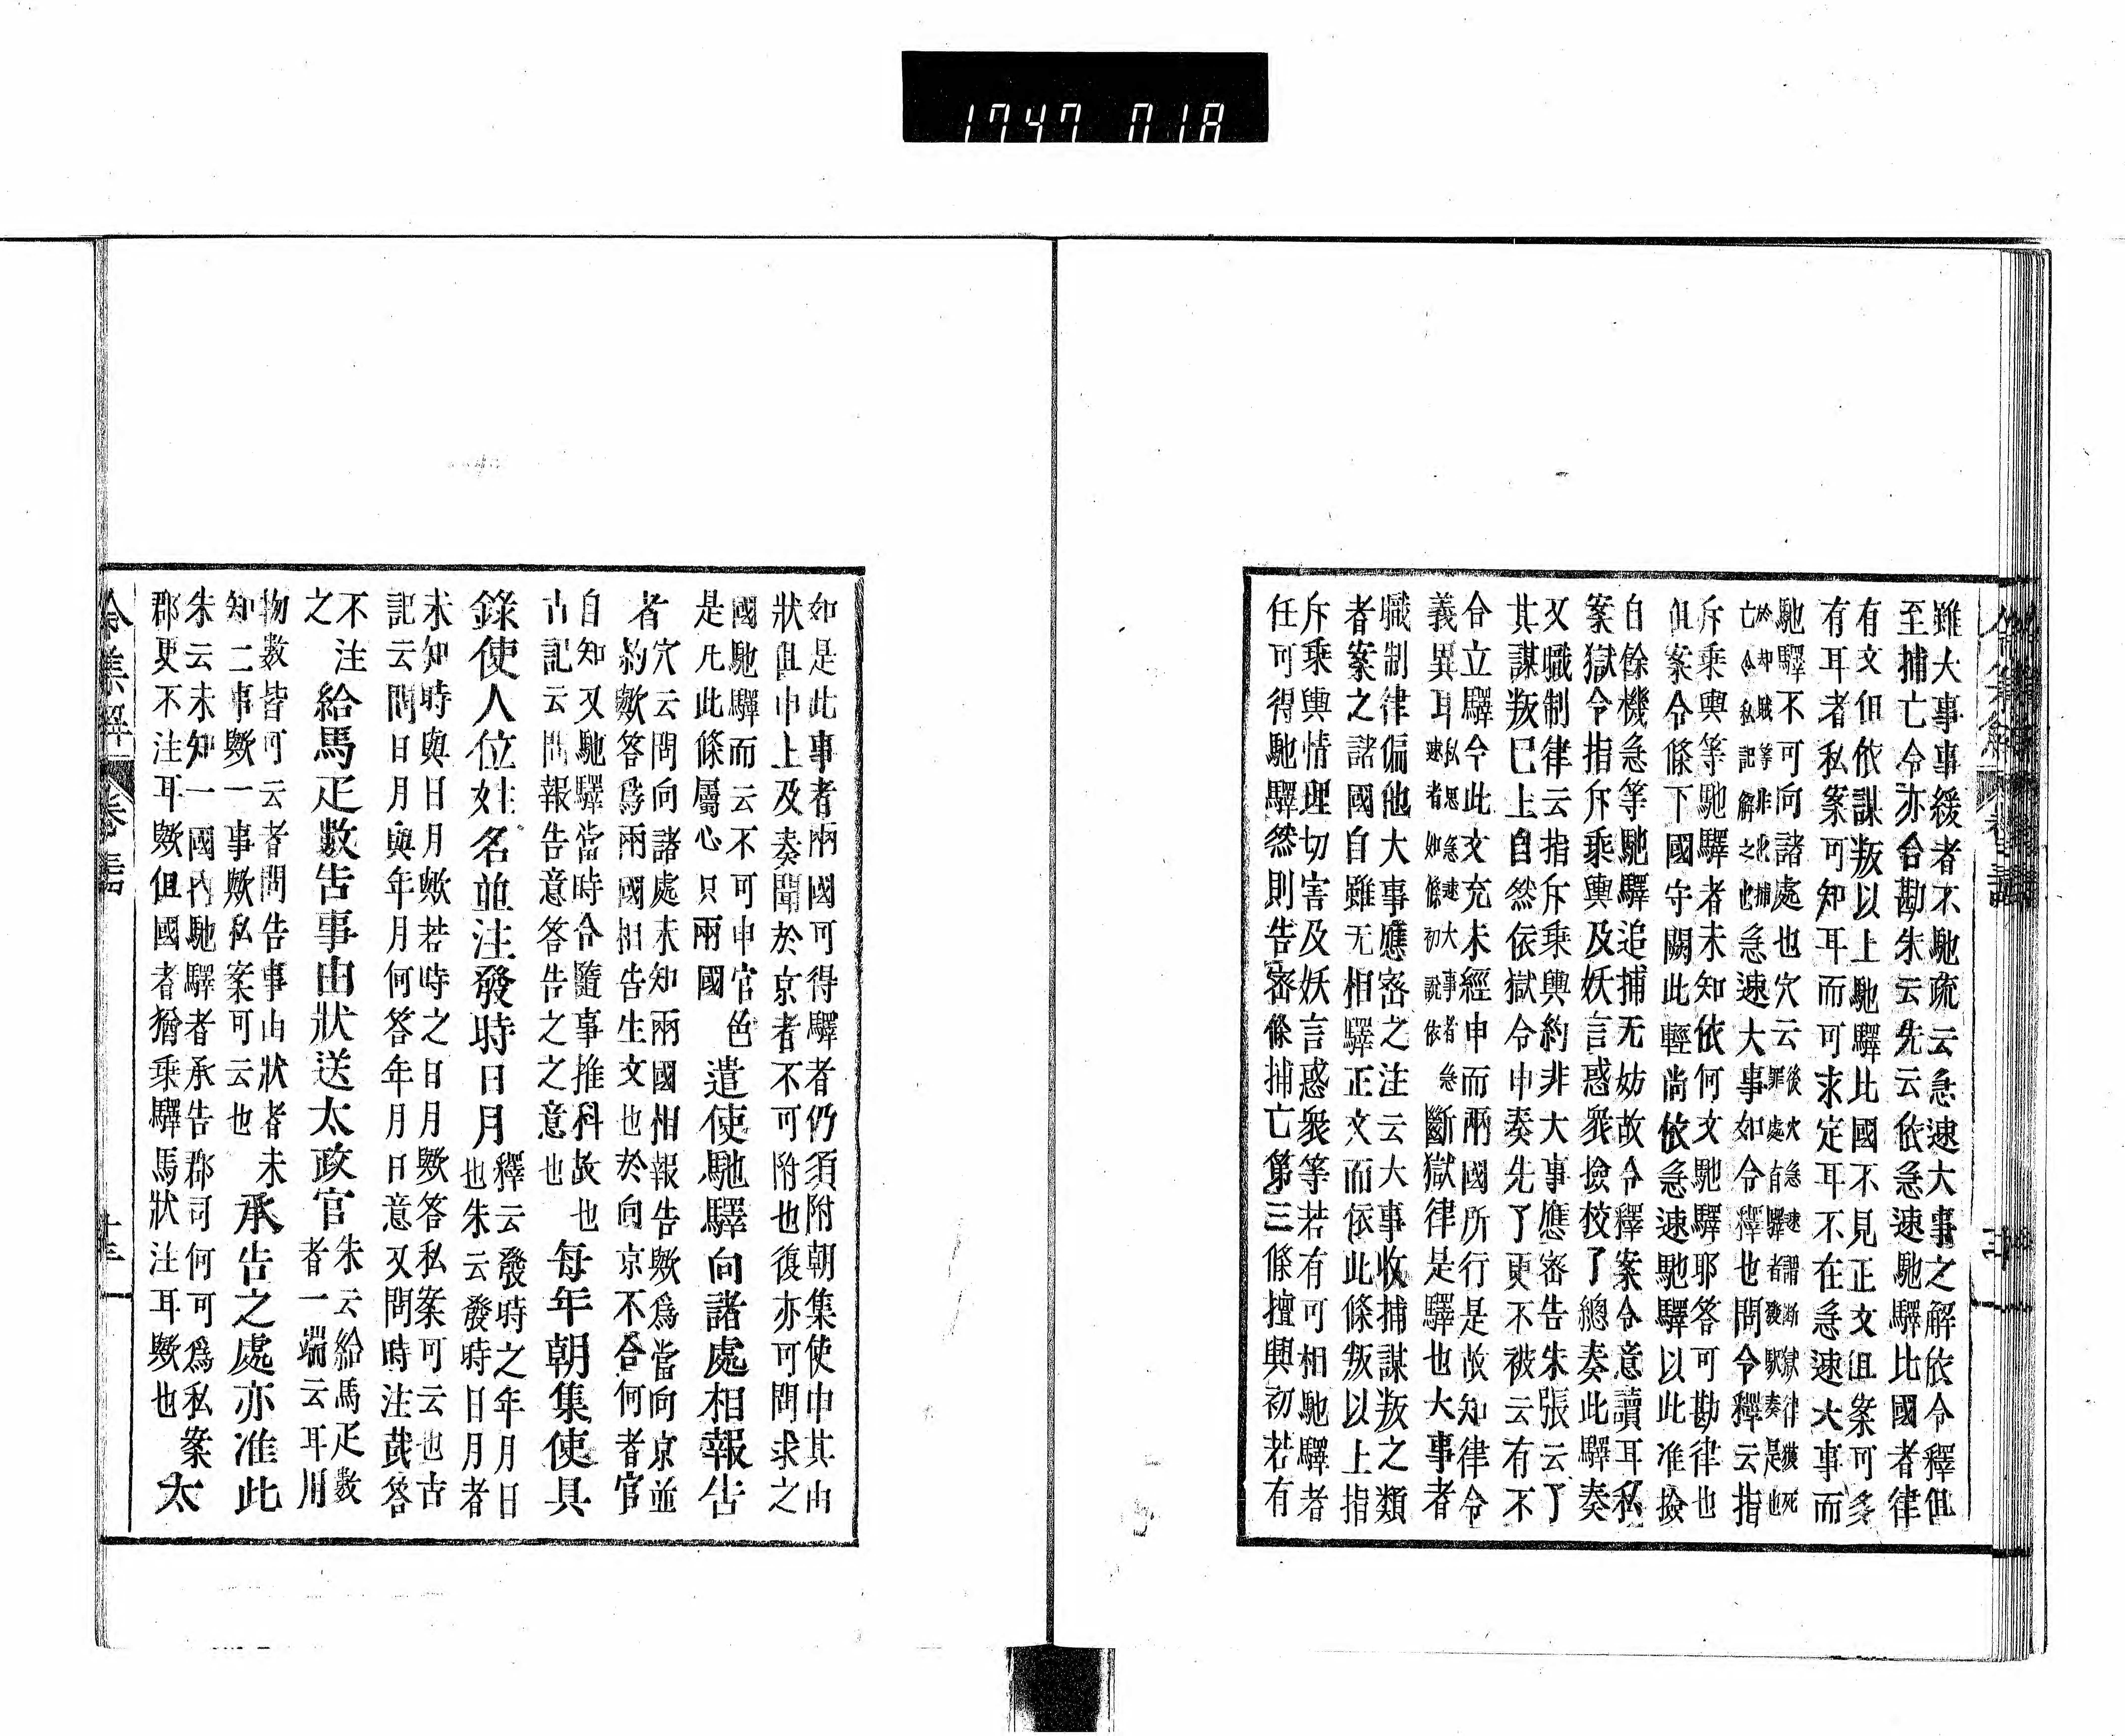 1747 018
雖大事事緩者不馳疏云急速大事之解依令釋但
至捕亡令亦合勘朱云先云依急速馳驛比國者律
有文但依謀叛以上馳驛比國不見正文但案可多
有耳者私案可知耳而可求定耳不在急速大事而
馳驛不可向諸處也穴云後穴急速謂断獄律獲死
於却賊等非此捕罪處自驛者發馳奏是也
亡令私記解之也急速大事如令釋也問令釋云指
斥乘輿等馳驛者未知依何文馳驛耶答可勘律也
但案令條下國守關此輕尚依急速馳驛以此准撿
自餘機急等馳驛追捕无妨故令釋案令意讀耳私
案獄令指斥乘輿及妖言惑衆撿校了總奏此驛奏
又職制律云指斥乘輿約非大事應密告朱張云了
其謀叛巳上自然依獄令申奏先了更不被云有不
合立驛令此文充未經申而兩國所行是故知律令
義異耳私思急速大事者急
速者如條初說依斷獄律是驛也大事者
職制律偏他大事應密之注云大事收捕謀叛之類
者案之諸國自雖无相驛正文而依此條叛以上指
斥乘輿情理切害及妖言惑衆等若有可相馳驛者
任可得馳驛然則告密條捕亡第三條擅興初若有
如是此事者兩國可得驛者仍須附朝集使申其由
狀但申上及奏聞於京者不可附也復亦可問求之
國馳驛而云不可申官色
是凡此條屬心只兩國遣使馳驛向諸處相報告
者穴云問向諸處未知兩國相報告歟爲當向京並
約歟答爲兩國相告生文也於向京不合何者官
自知又馳驛當時令隨事推科故也
古記云問報告意答告之之意也每年朝集使具
錄使人位姓名並注發時日月釋云發時之年月日
也朱云發時日月者
未知時與日月歟若時之日月歟答私案可云也古
記云問日月與年月何答年月日意又問時注哉答
不注
之給馬疋數告事由狀送太政官朱云給馬疋數
者一端云耳用
物數皆可云者問告事由狀者未
知二事歟一事歟私案可云也承告之處亦准此
朱云未知一國內馳驛者承告郡司何可爲私案
郡更不注耳歟但國者猶乘驛馬狀注耳歟也太